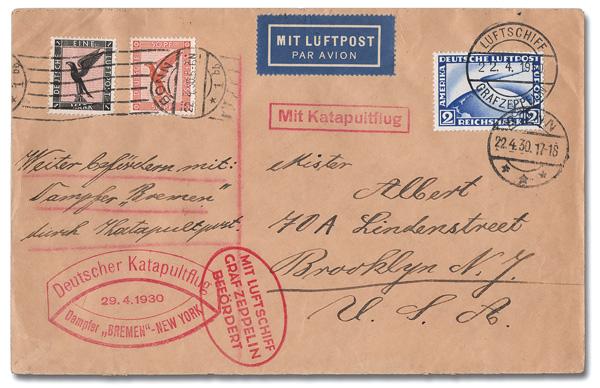 DEUTSCHE EINE
1 MARK 1
50 PF
BONN
MIT LUFTPOST
PAR AVION
DEUTSCHE LUFTPOST
AMERIKA
EUROPA
2 REICHSMARK 2
LUFTSCHIFF
22.4.19
GRAF ZEPPELIN
22.4.30.17-18
Mit Katapultflug
Weiter befördern mit:
Dampfer „Bremen“
durch Katapultpost.
Mister
Albert
70A Lindenstreet
Brooklyn N. J.
U. S. A.
Deutscher Katapultflug
29.4.1930
Dampfer „BREMEN“-NEW YORK
MIT LUFTSCHIFF
GRAF ZEPPELIN
BEFÖRDERT